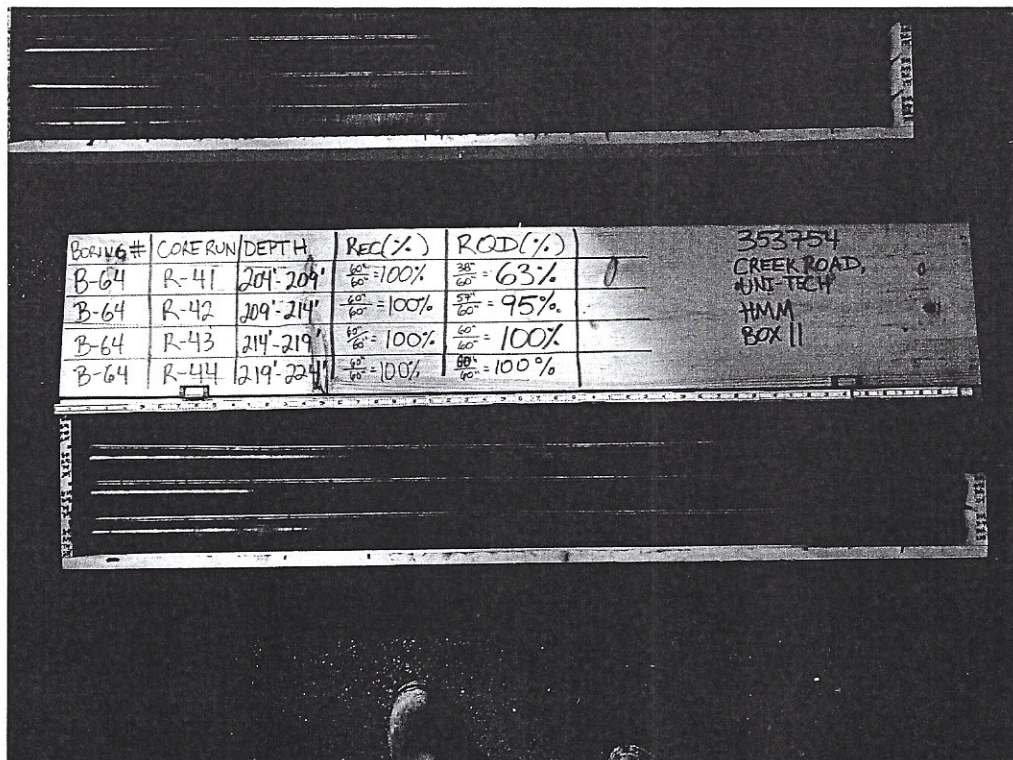 BORING # CORE RUN DEPTH REC(%) RQD(%)
B-64 R-41 204'-209' 60"/60" = 100% 38"/60" = 63%
B-64 R-42 209'-214' 60"/60" = 100% 57"/60" = 95%
B-64 R-43 214'-219' 60"/60" = 100% 60"/60" = 100%
B-64 R-44 219'-224' 60"/60" = 100% 60"/60" = 100%
353754
CREEK ROAD,
"UNI-TECH"
HMM
BOX 11